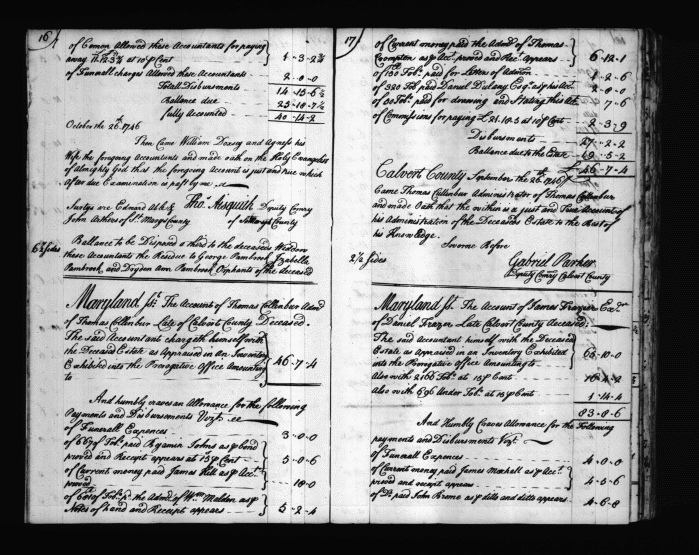 16
of Comon Allowed these Accountants for paying
away 11.12.3¾ at 10 ℔ Cent 1-3-2¾
of Funnall charges Allowed these Accountants 2-0-0
Total Disbursments 14-15-6½
Ballance due 25-18-7½
fully Accounted 40-14-2
October the 25th 1746
Then Came William Deasg and Agness his
Wife the foregoing Accountants and made oath on the Holy Evangelys
of Almighty God that the foregoing Account is just and true which
after due Examination is past by me
Thos Aisquith Deputy Comry
of St Marys County
Suretys are Edward Abk &
John Athers of St Marys County
Ballance to be Disposed a third to the deceaseds Widdow
these Accountants the Residue to George Pambrook Izabella
Pambrook, and Drydon Ann Pambrook Orphants of the deceased
6½ Sides
Maryland Ss. The Account of Thomas Cullember Admr
of Thomas Cullember Late of Calvert County Deceased
The said Accountant chargeth himself with
the Deceaseds Estate as Appraised in An Inventory
Exhibited into the Prerogative Office Amounting
to 46-7-4
And humbly craves an Allowance for the following
Payments and Disbursments Vizt
of Funerall Expences 3-0-0
of 669 lb Tobo. paid Benjamin Johns as ℔ bond
proved and Receipt appears at 15 ℔ Cent 5-0-6
of Current money paid James Hall as ℔ Acct
proved 18-0
of Tobo. to the Admr of Wm Meldon as ℔
Notes of hand and Receipt appears 5-2-4
17
of Current money paid the Admr of Thomas
Crompton as ℔ Acct. proved and Rect appears 6-12-1
of 150 Tobo. paid for Letters of Admon 1-2-6
of 320 Tobo paid Daniel Dulany Esqr as ℔ his Acct. 2-8-0
of 50 Tobo paid for drawing and Stating this Act 7-6
of Commissons for paying £21.18.5 at 10 ℔ Cent 2-3-9
Disbursments 27-2-2
Ballance due to the Estate 19-5-2
46-7-4
Calvert County September the 26th 1746
Came Thomas Cullember Administrator of Thomas Cullember
and made Oath that the within is a just and True Account of
his Administration of the Deceaseds Estate to the Best of
his Knowledge.
Sworne Before
Gabriel Parker
Deputy Comry Calvert County
2½ Sides
Maryland Ss. The Account of James Frazier Exr
of Daniel Frazer Late Calvert County Deceased
The said Accountant himself with the Deceased
Estate as Appraised in an Inventory Exhibited
into the Prerogative Office Amounting to 65-10-0
Also with 2166 Tobo at 15 ℔ Cent 16-4-2
Also with 696 Under Tobo at 15 ℔ Cent 1-14-4
83-8-6
And Humbly Craves Allowance for the Following
payments and Disbursments Vizt
of Funerall Expences 4-0-0
of Current money paid James Mackall as ℔ Acct.
proved and receipt appears 4-5-6
of Do paid John Brome as ℔ ditto and ditto appears 4-6-8